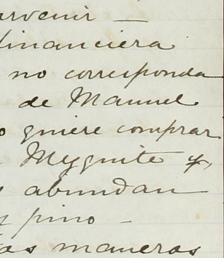 arvenir —
financiera
no corresponda
de Manuel
quiere comprar
Mezquite y
abundan
y pino —
as maneras